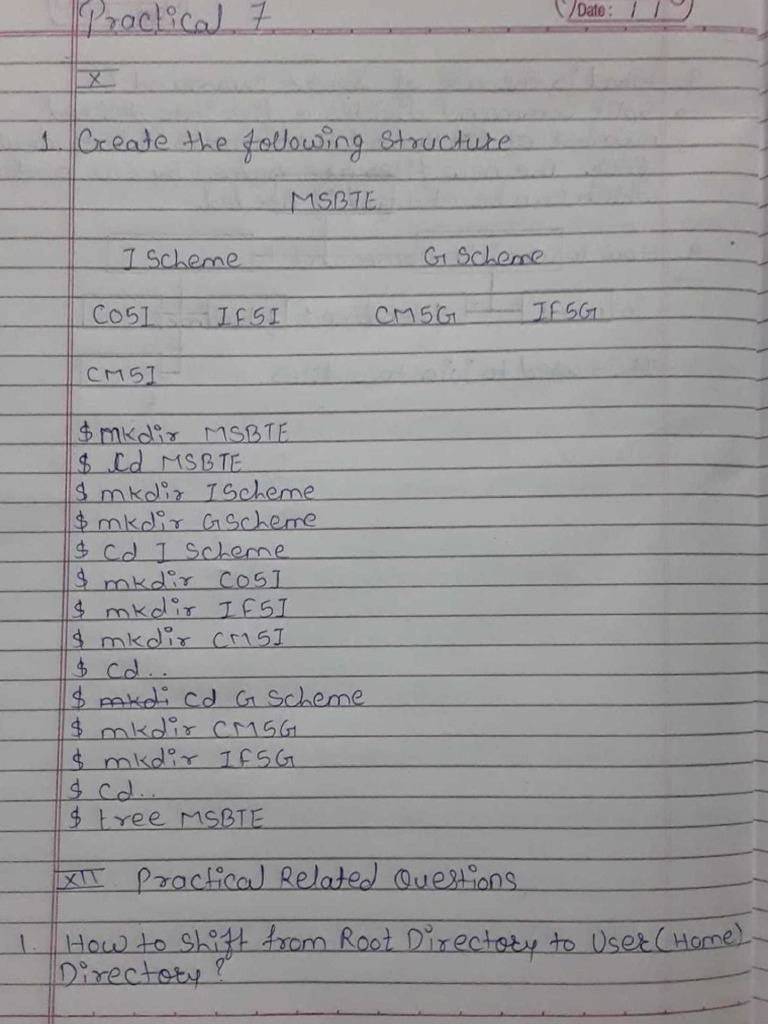 Practical 7
Date: / /
X
1. Create the following structure
MSBTE
I Scheme G Scheme
CO5I IF5I CM5G IF5G
CM5I
$ mkdir MSBTE
$ cd MSBTE
$ mkdir IScheme
$ mkdir GScheme
$ cd I Scheme
$ mkdir CO5I
$ mkdir IF5I
$ mkdir CM5I
$ cd..
$ mkdi cd G Scheme
$ mkdir CM5G
$ mkdir IF5G
$ cd..
$ tree MSBTE
XII Practical Related Questions
1. How to shift from Root Directory to User (Home)
Directory?